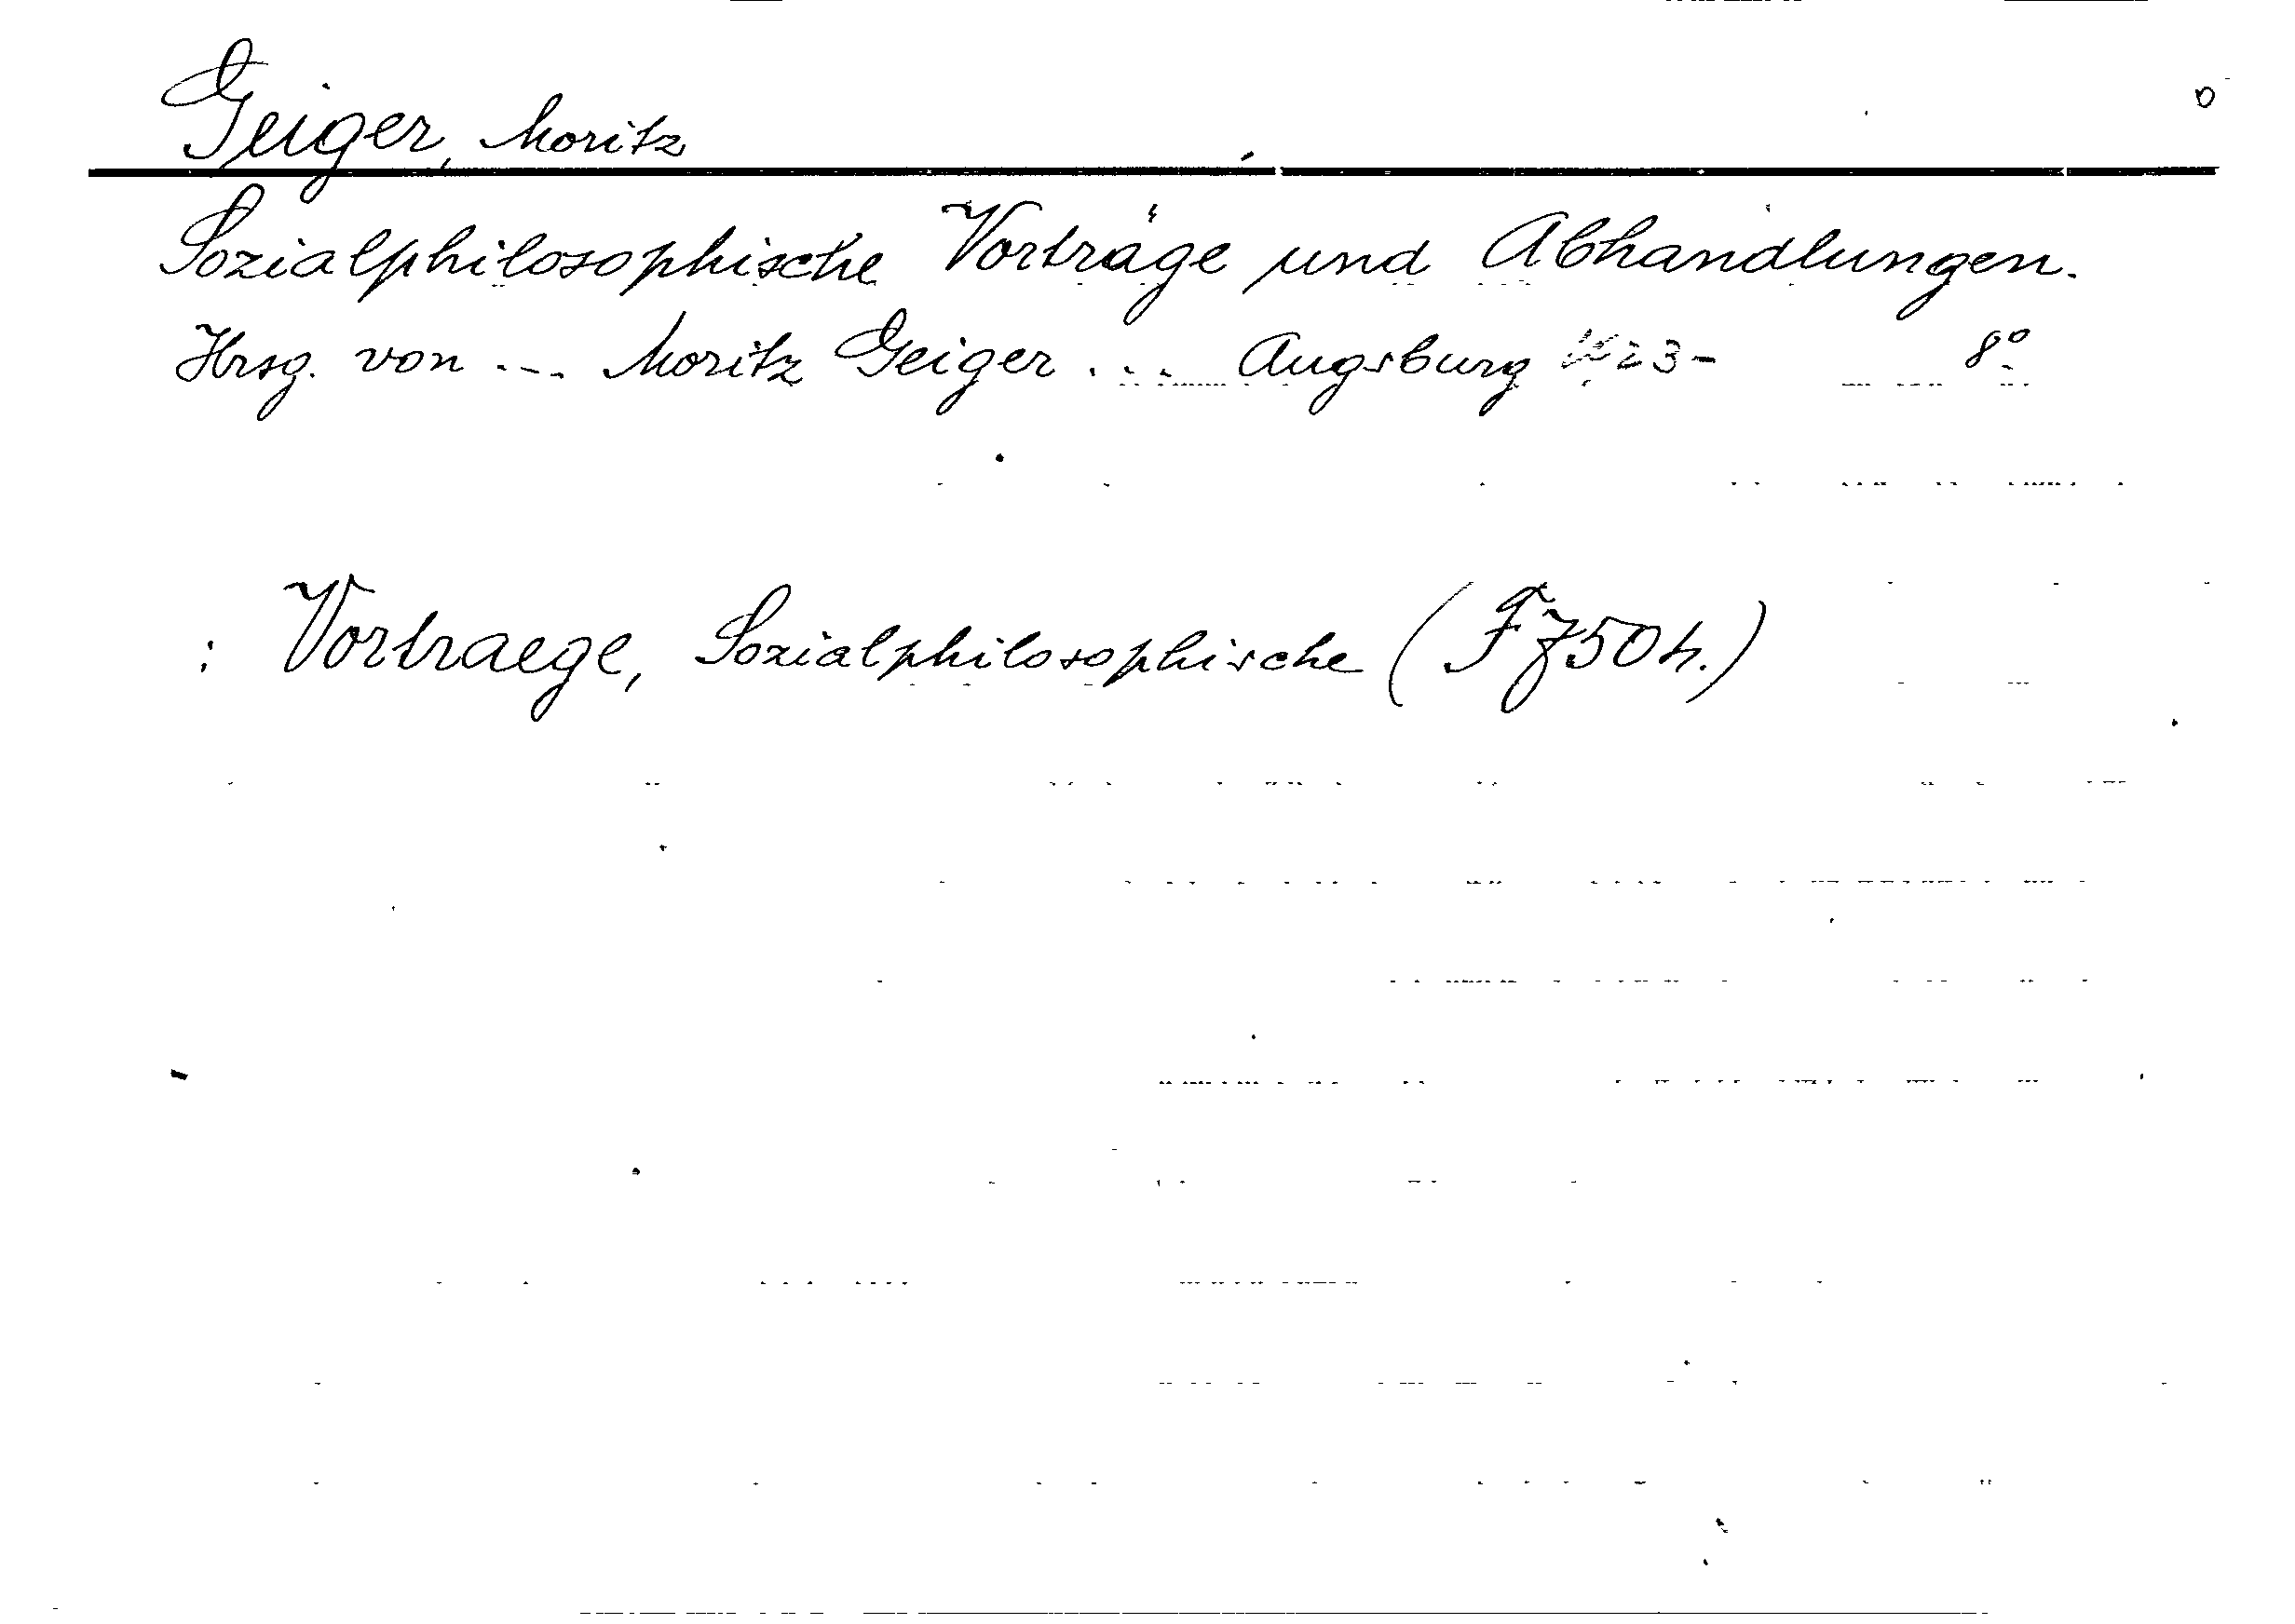 Geiger, Moritz
Sozialphilosophische Vorträge und Abhandlungen.
Hrsg. von ... Moritz Geiger ... Augsburg 8°
: Vortraege, Sozialphilosophische (F7504.)